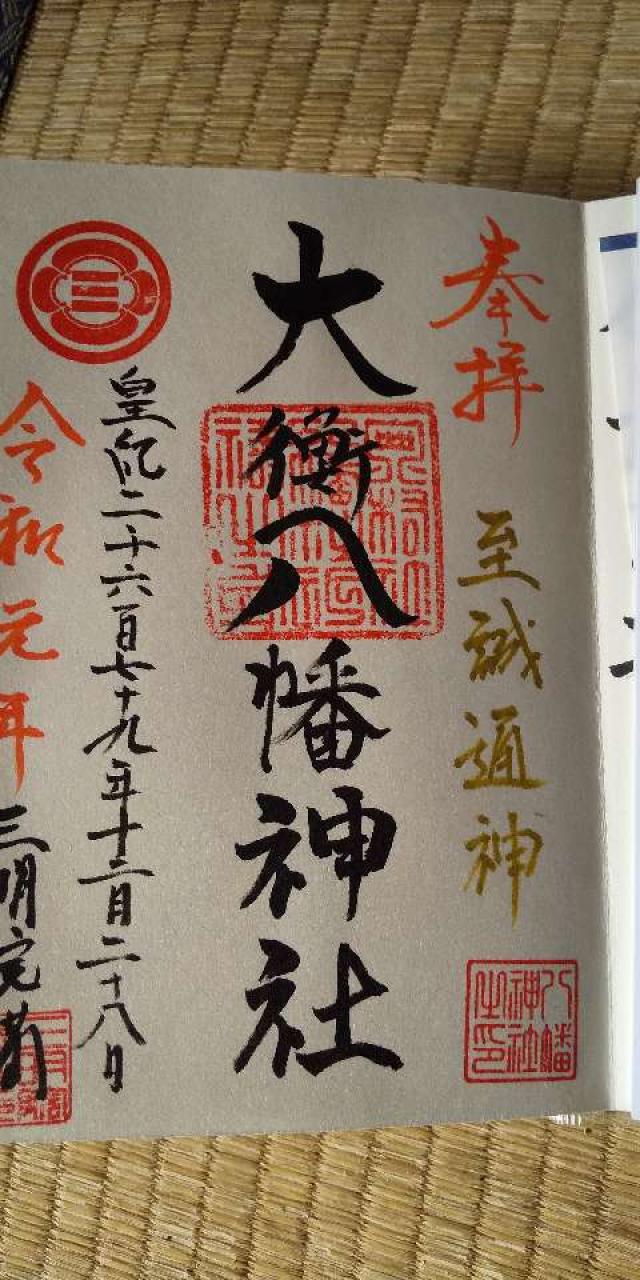 奉拝
至誠通神
八幡神社之印
大衡八幡神社
皇紀二千六百七十九年十二月二十八日
令和元年